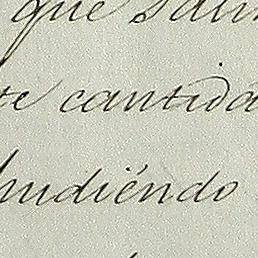 que
te cantida
hudiéndo